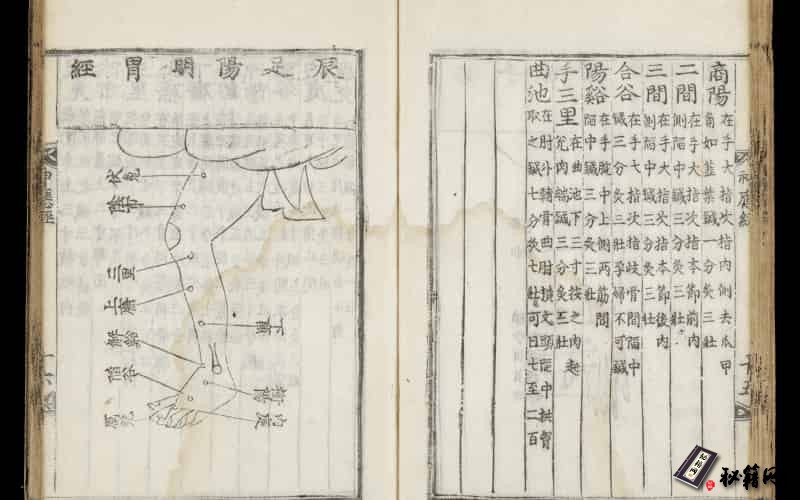 商陽 在手大指次指內側去爪甲
角如韭葉鍼一分灸三壯
二間 在手大指次指本節前內
側陷中鍼三分灸三壯
三間 在手大指次指本節後內
側陷中鍼三分灸三壯
合谷 在手大指次指歧骨間陷中
鍼三分灸三壯孕婦不可鍼
陽谿 在手腕中上側兩筋間
陷中鍼三分灸三壯
手三里 在曲池下三寸按之肉起
兌肉端鍼三分灸三壯
曲池 在肘外輔骨曲肘橫文頭陷中拱胷
取之鍼七分灸七壯可日七至二百
神應經
十五
辰足陽明胃經
伏兔
陰市
三里
上廉
解谿
陷谷
厲兌
神應經
十六
秘籍网